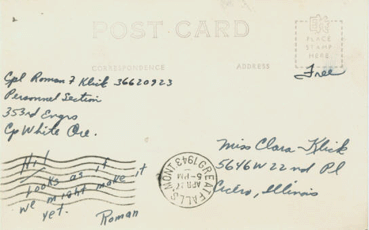 POST CARD
CORRESPONDENCE
ADDRESS
PLACE
STAMP
HERE
Free
Cpl Roman F Klick 36620923
Personnel Section
353rd Engrs
Cp White Ore.
Miss Clara Klick
5646 W 22nd Pl
Cicero, Illinois
GREAT FALLS MONT
1943
5 - PM
Hi!
Looks as it
we might make it
yet.
Roman